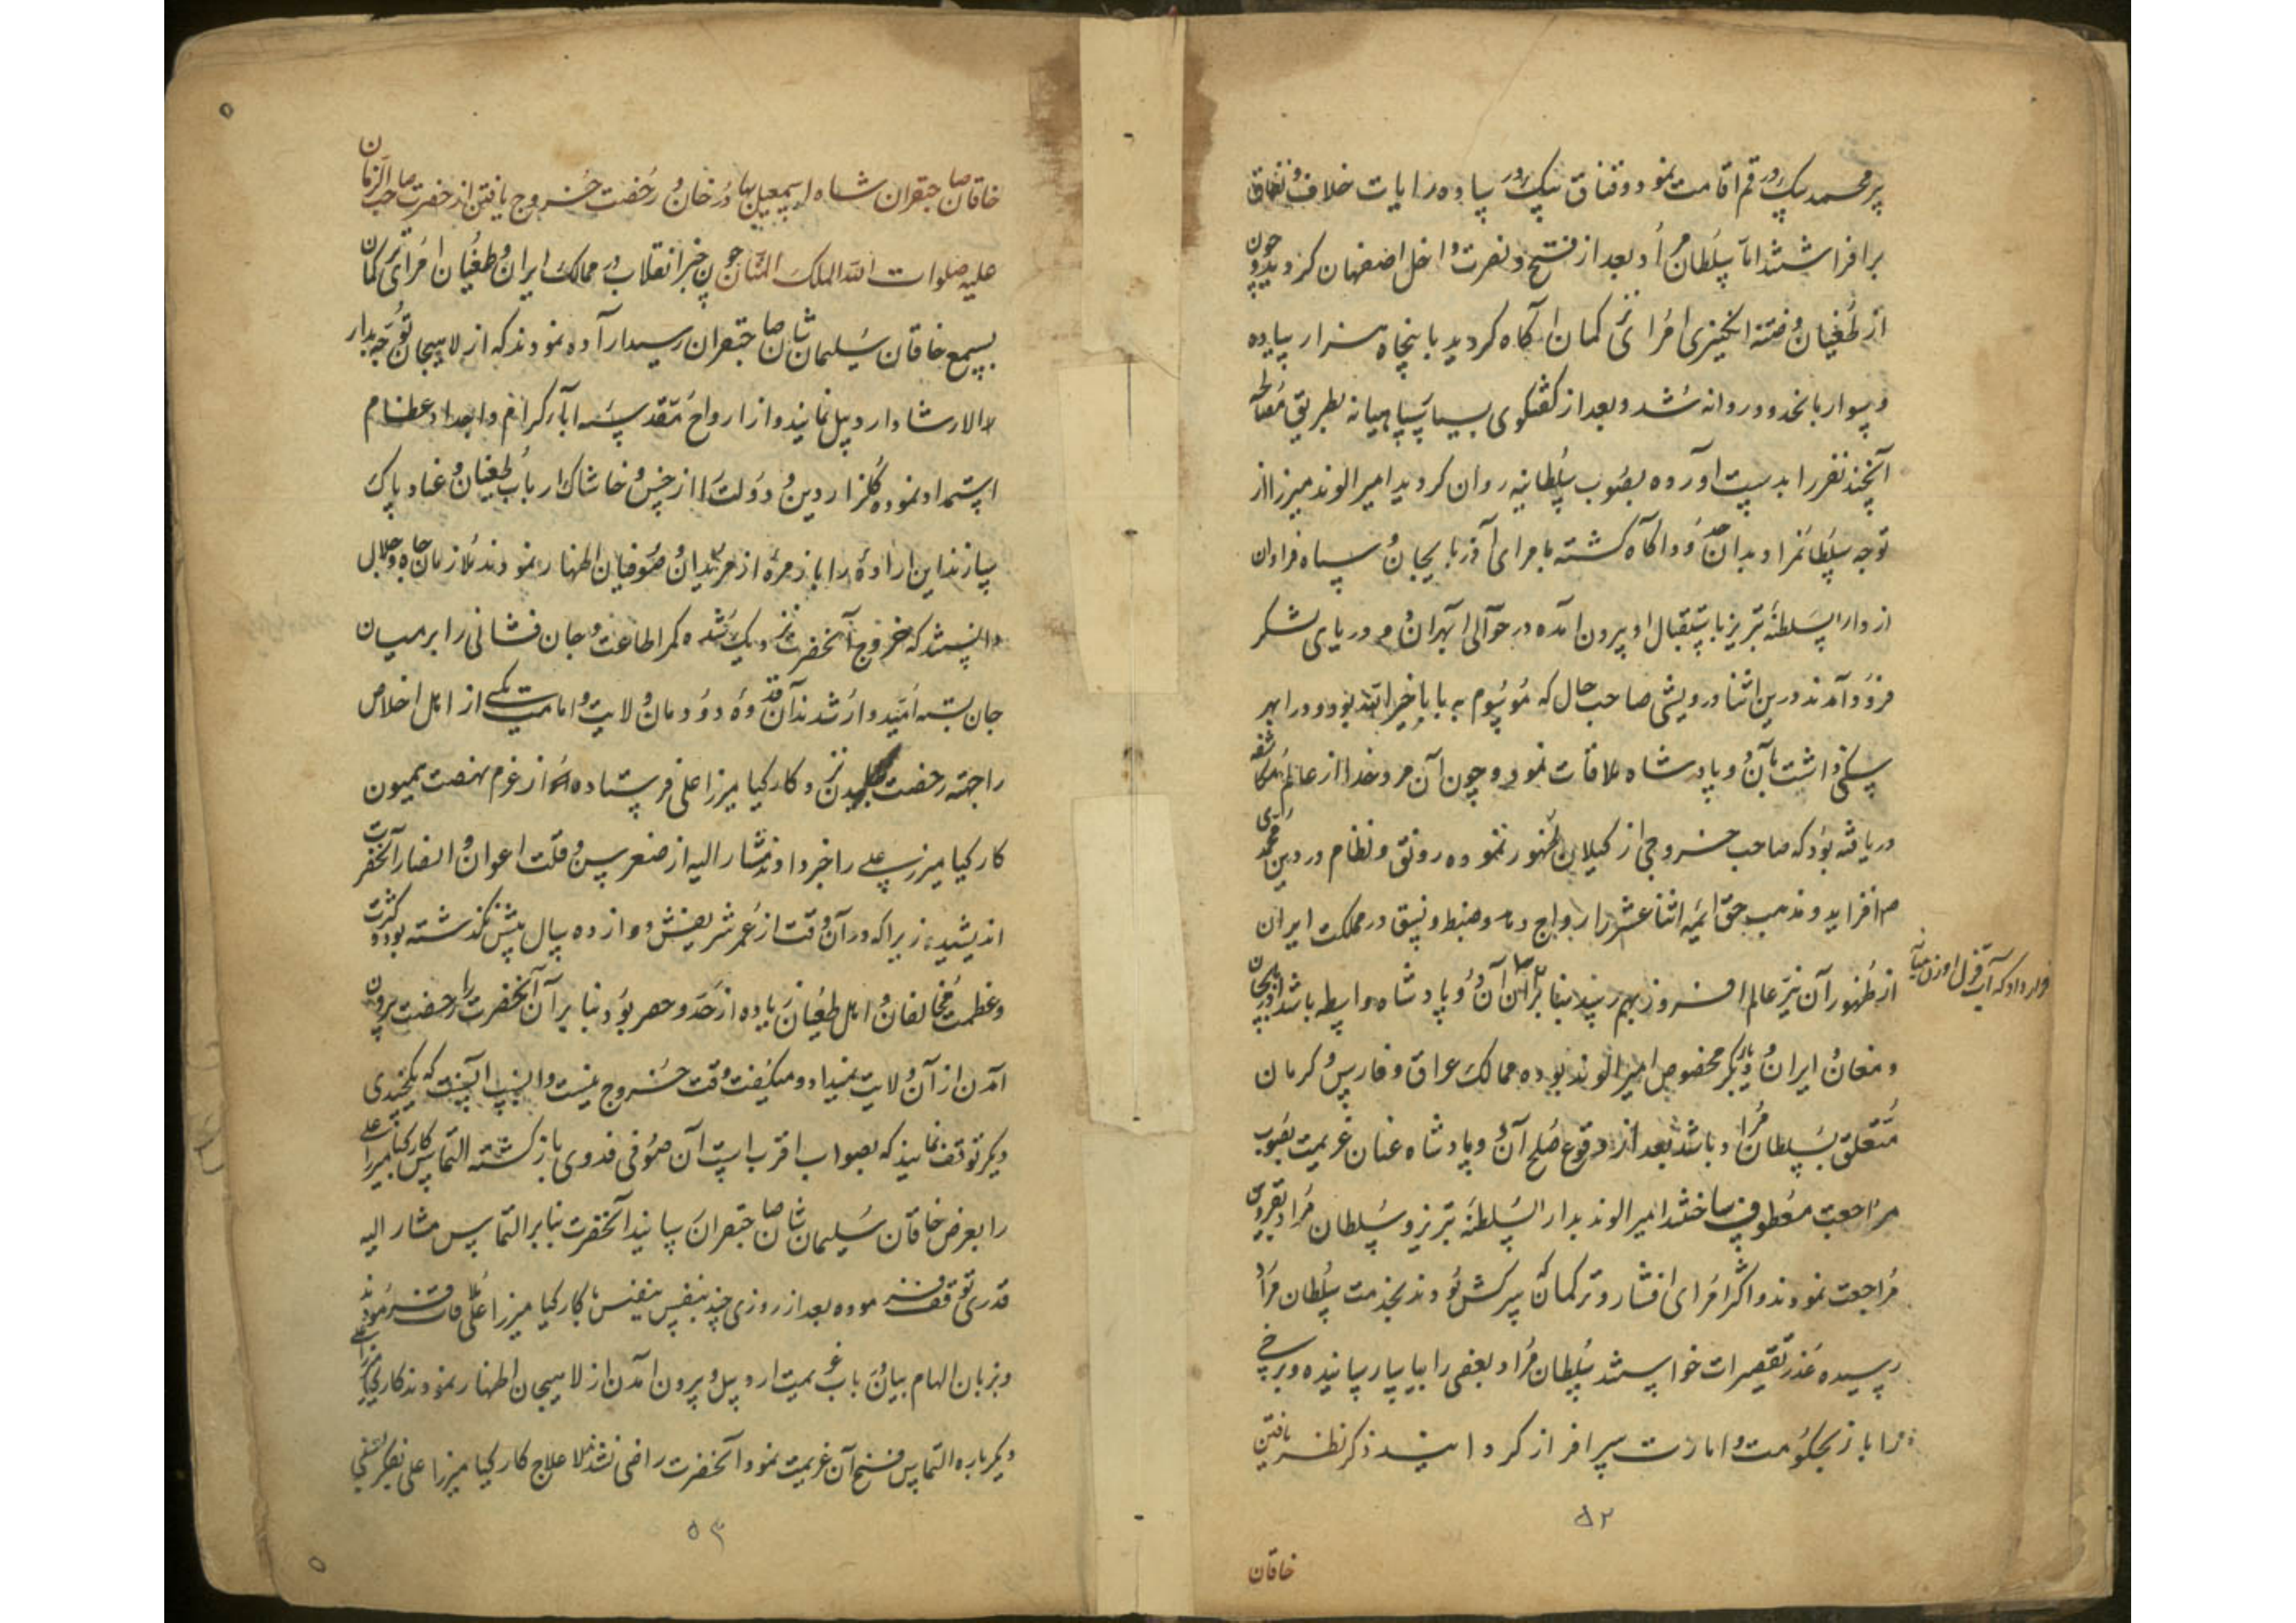 پیرمحمد بیک در قم اقامت نمود و قناق بیک در پیاده رایات خلاف و نفاق
برافراشتند اما سلطان مراد بعد از فتح و نصرت داخل اصفهان کردید و چون
از طغیان و فتنه انکیزی امرای ترکمان آکاه کردید با پنجاه هزار پیاده
و سوار بانحدود روانه شد و بعد از کفتکوی بسیار سپاهیانه بطریق مصالحه
آنچند نفر را بدست آورده بصوب سلطانیه روان کردید امیر الوند میرزا از
توجه سلطانمراد بدان حدود آکاه کشته با مرای آذربایجان و سپاه فراوان
از دار السلطنه تبریز باستقبال او بیرون آمده در حوالی ابهر آن دو دریای لشکر
فرود آمدند درین اثنا درویشی صاحب حال که موسوم به بابا خیرالله بود و در ابهر
سکنی داشت بآن دو پادشاه ملاقات نمود و چون آن مرد خدا از عالم مکاشفه
دریافته بود که صاحب خروجی از کیلان ظهور نموده رونق و نظام در دین محمدی
م افزاید و مذهب حق ائمه اثنا عشر را رواج داده و ضبط و نسق در مملکت ایران
از ظهور آن نیر عالم افروز بهم رسد بنا بر این آن دو پادشاه واسطه باشد آذربایجان
قرار داد که آب قزل اوزن میانه
و مغان و ایران و دیاربکر مخصوص امیر الوند بوده ممالک عراق و فارس و کرمان
متعلق بسلطان مراد باشد بعد از وقوع صلح آن دو پادشاه عنان عزیمت بصوب
مراجعت معطوف ساختند امیر الوند بدار السلطنه تبریز و سلطان مراد بقزوین
مراجعت نمودند و اکثر امرای افشار و ترکمان که سرکش بودند بخدمت سلطان مراد
رسیده عذر تقصیرات خواستند سلطان مراد بعضی را بیاسا رسانیده و برخی
را باز بحکومت و امارت سرافراز کردانید ذکر نظر یافتن
۵۲
خاقان
خاقان صاحبقران شاه اسمعیل بهادر خان و رخصت خروج یافتن از حضرت صاحب الزمان
علیه صلوات الله الملک المنان چون خبر انقلاب در ممالک ایران و طغیان امرای ترکمان
بسمع خاقان سلیمان شان صاحبقران رسید اراده نمودند که از لاهیجان توجه بدار
الارشاد اردبیل نمایند و از ارواح مقدسه آباء کرام و اجداد عظام
استمداد نموده کلزار دین و دولت را از خس و خاشاک ارباب طغیان و عناد پاک
سازند این اراده را با زمره از مریدان و صوفیان اظهار نمودند ملازمان جاه و جلال
دانستند که خروج آنحضرت نزدیک شده کمر اطاعت و جان فشانی را بر میان
جان بسته امیدوار شدند آن قدوه دودمان ولایت و امامت یکی از اهل اخلاص
را جهة رخصت نزد کارکیا میرزا علی فرستاده از عزم نهضت همیون
کارکیا میرزا علی را خبر داد مشار الیه از صغر سن و قلت اعوان و انصار آنحضرت
اندیشید زیرا که در آن وقت از عمر شریفش دوازده سال بیش نکذشته بود و کثرت
و عظمت مخالفان و اهل طغیان زیاده از حد و حصر بود بنا بر آن آنحضرت را رخصت بیرون
آمدن از آن ولایت نمیداد و میکفت وقت خروج نیست و انسب آنست که یکچندی
دیکر توقف نمایند که بصواب اقرب است آن صوفی فدوی باز کشته التماس کارکیا میرزا علی
را بعرض خاقان سلیمان شان صاحبقران رسانید آنحضرت بنا بر التماس مشار الیه
قدری توقف فرموده بعد از روزی چند بنفس نفیس با کارکیا میرزا علی ملاقات فرمودند
و بزبان الهام بیان در باب عزیمت اردبیل و بیرون آمدن از لاهیجان اظهار نمودند کارکیا میرزا علی
دیکر باره التماس فسخ آن عزیمت نمود آنحضرت راضی نشد لاعلاج کارکیا میرزا علی
۵۳